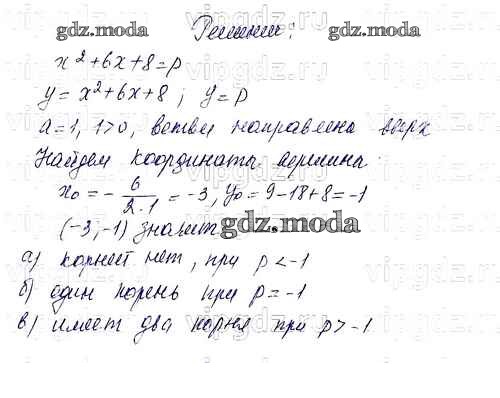 Решение:
gdz.moda gdz.moda
x²+6x+8=p
y=x²+6x+8; y=p
a=1, 1>0, ветви направлена вверх
Найдем координата вершина:
x₀ = - 6/2·1 = -3, y₀ = 9-18+8=-1
(-3;-1) значит gdz.moda
а) корней нет, при p<-1
б) один корень при p=-1
в) имеет два корня при p>-1